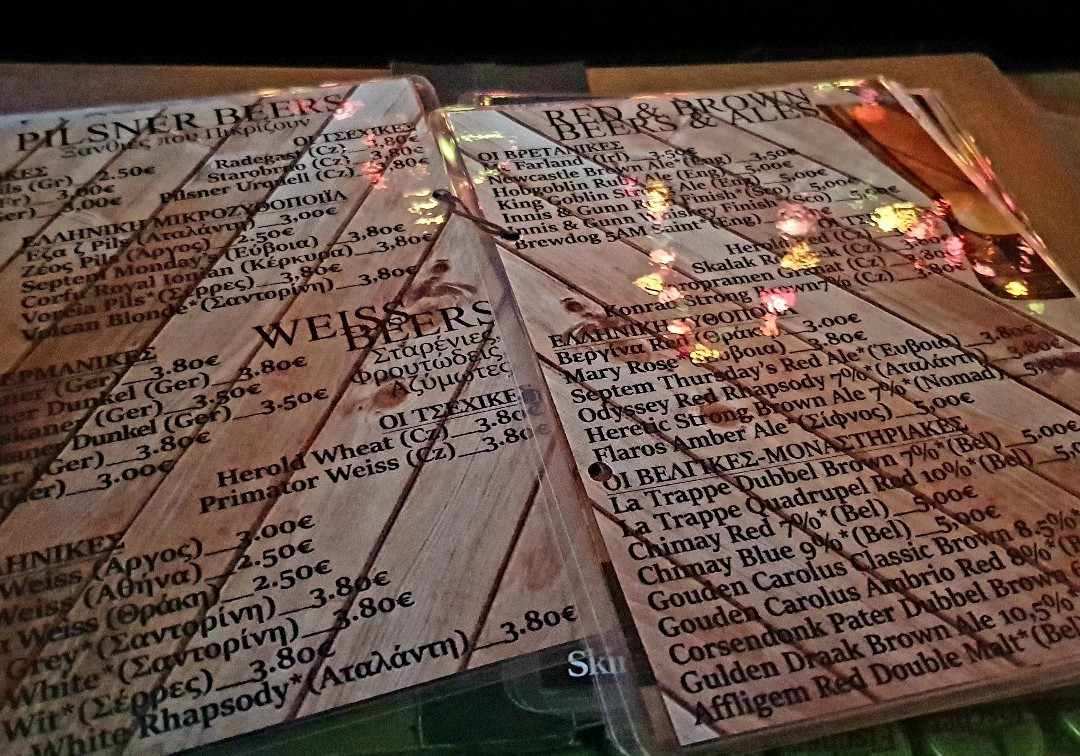 PILSNER BEERS
Ξανθιές που Πικρίζουν
ΟΙ ΤΣΕΧΙΚΕΣ
Radegast (Cz) 3,80€
Starobrno (Cz) 3,80€
Pilsner Urquell (Cz) 3,80€
(Gr) 2.50€
3,00€
3,00€
ΕΛΛΗΝΙΚΗ ΜΙΚΡΟΖΥΘΟΠΟΙΪΑ
Έζα ζ Pils (Αταλάντη) 3,00€
Ζέος Pils (Άργος) 2.50€
Septem Monday's (Εύβοια) 3.80€
Corfu Royal Ionian (Κέρκυρα) 3,80€
Voreia Pils*(Σέρρες) 3,80€
Volcan Blonde*(Σαντορίνη) 3,80€
WEISS BEERS
Σταρένιες,
Φρουτώδεις,
Αζύμωτες
(Ger) 3.80€
Dunkel (Ger) 3.80€
(Ger) 3.50€
Dunkel (Ger) 3.50€
Ger) 3.80€
3.00€
ΟΙ ΤΣΕΧΙΚΕ
Herold Wheat (Cz) 3.80
Primator Weiss (Cz) 3.80
Weiss (Άργος) 3.00€
Weiss (Αθήνα) 2.50€
Weiss (Θράκη) 2.50€
Grey*(Σαντορίνη) 3.80€
White*(Σαντορίνη) 3.80€
Wit*(Σέρρες) 3.80€
White Rhapsody*(Αταλάντη) 3.80€
Skin
RED & BROWN
BEERS & ALES
ΟΙ ΒΡΕΤΑΝΙΚΕΣ
Farland (Irl) 3.50€
Newcastle Brown Ale*(Eng) 3,50€
Hobgoblin Ruby Ale (Eng)
King Goblin
Innis & Gunn
Innis & Gunn
Brewdog 5AM Saint
Herold Red
Skalak
Staropramen Granat (Cz)
Konrad Strong Brown 7% (Cz)
ΕΛΛΗΝΙΚΗ
Βεργίνα Red (Θράκη) 3.00€
Mary Rose 3.80€
Septem Thursday's Red Ale*(Εύβοια) 3.80€
Odyssey Red Rhapsody 7%*(Αταλάντη) 3.80€
Heretic Strong Brown Ale 7%*(Nomad)
Flaros Amber Ale*(Σίφνος) 5,00€
ΟΙ ΒΕΛΓΙΚΕΣ-ΜΟΝΑΣΤΗΡΙΑΚΕΣ
La Trappe Dubbel Brown 7%*(Bel) 5.00€
La Trappe Quadrupel Red 10%*(Bel)
Chimay Red 7%*(Bel) 5,00€
Chimay Blue 9%*(Bel) 5,00€
Gouden Carolus Classic Brown 8.5%
Gouden Carolus Ambrio Red 8%*(B
Corsendonk Pater Dubbel Brown
Gulden Draak Brown Ale 10,5%*
Affligem Red Double Malt*(Bel